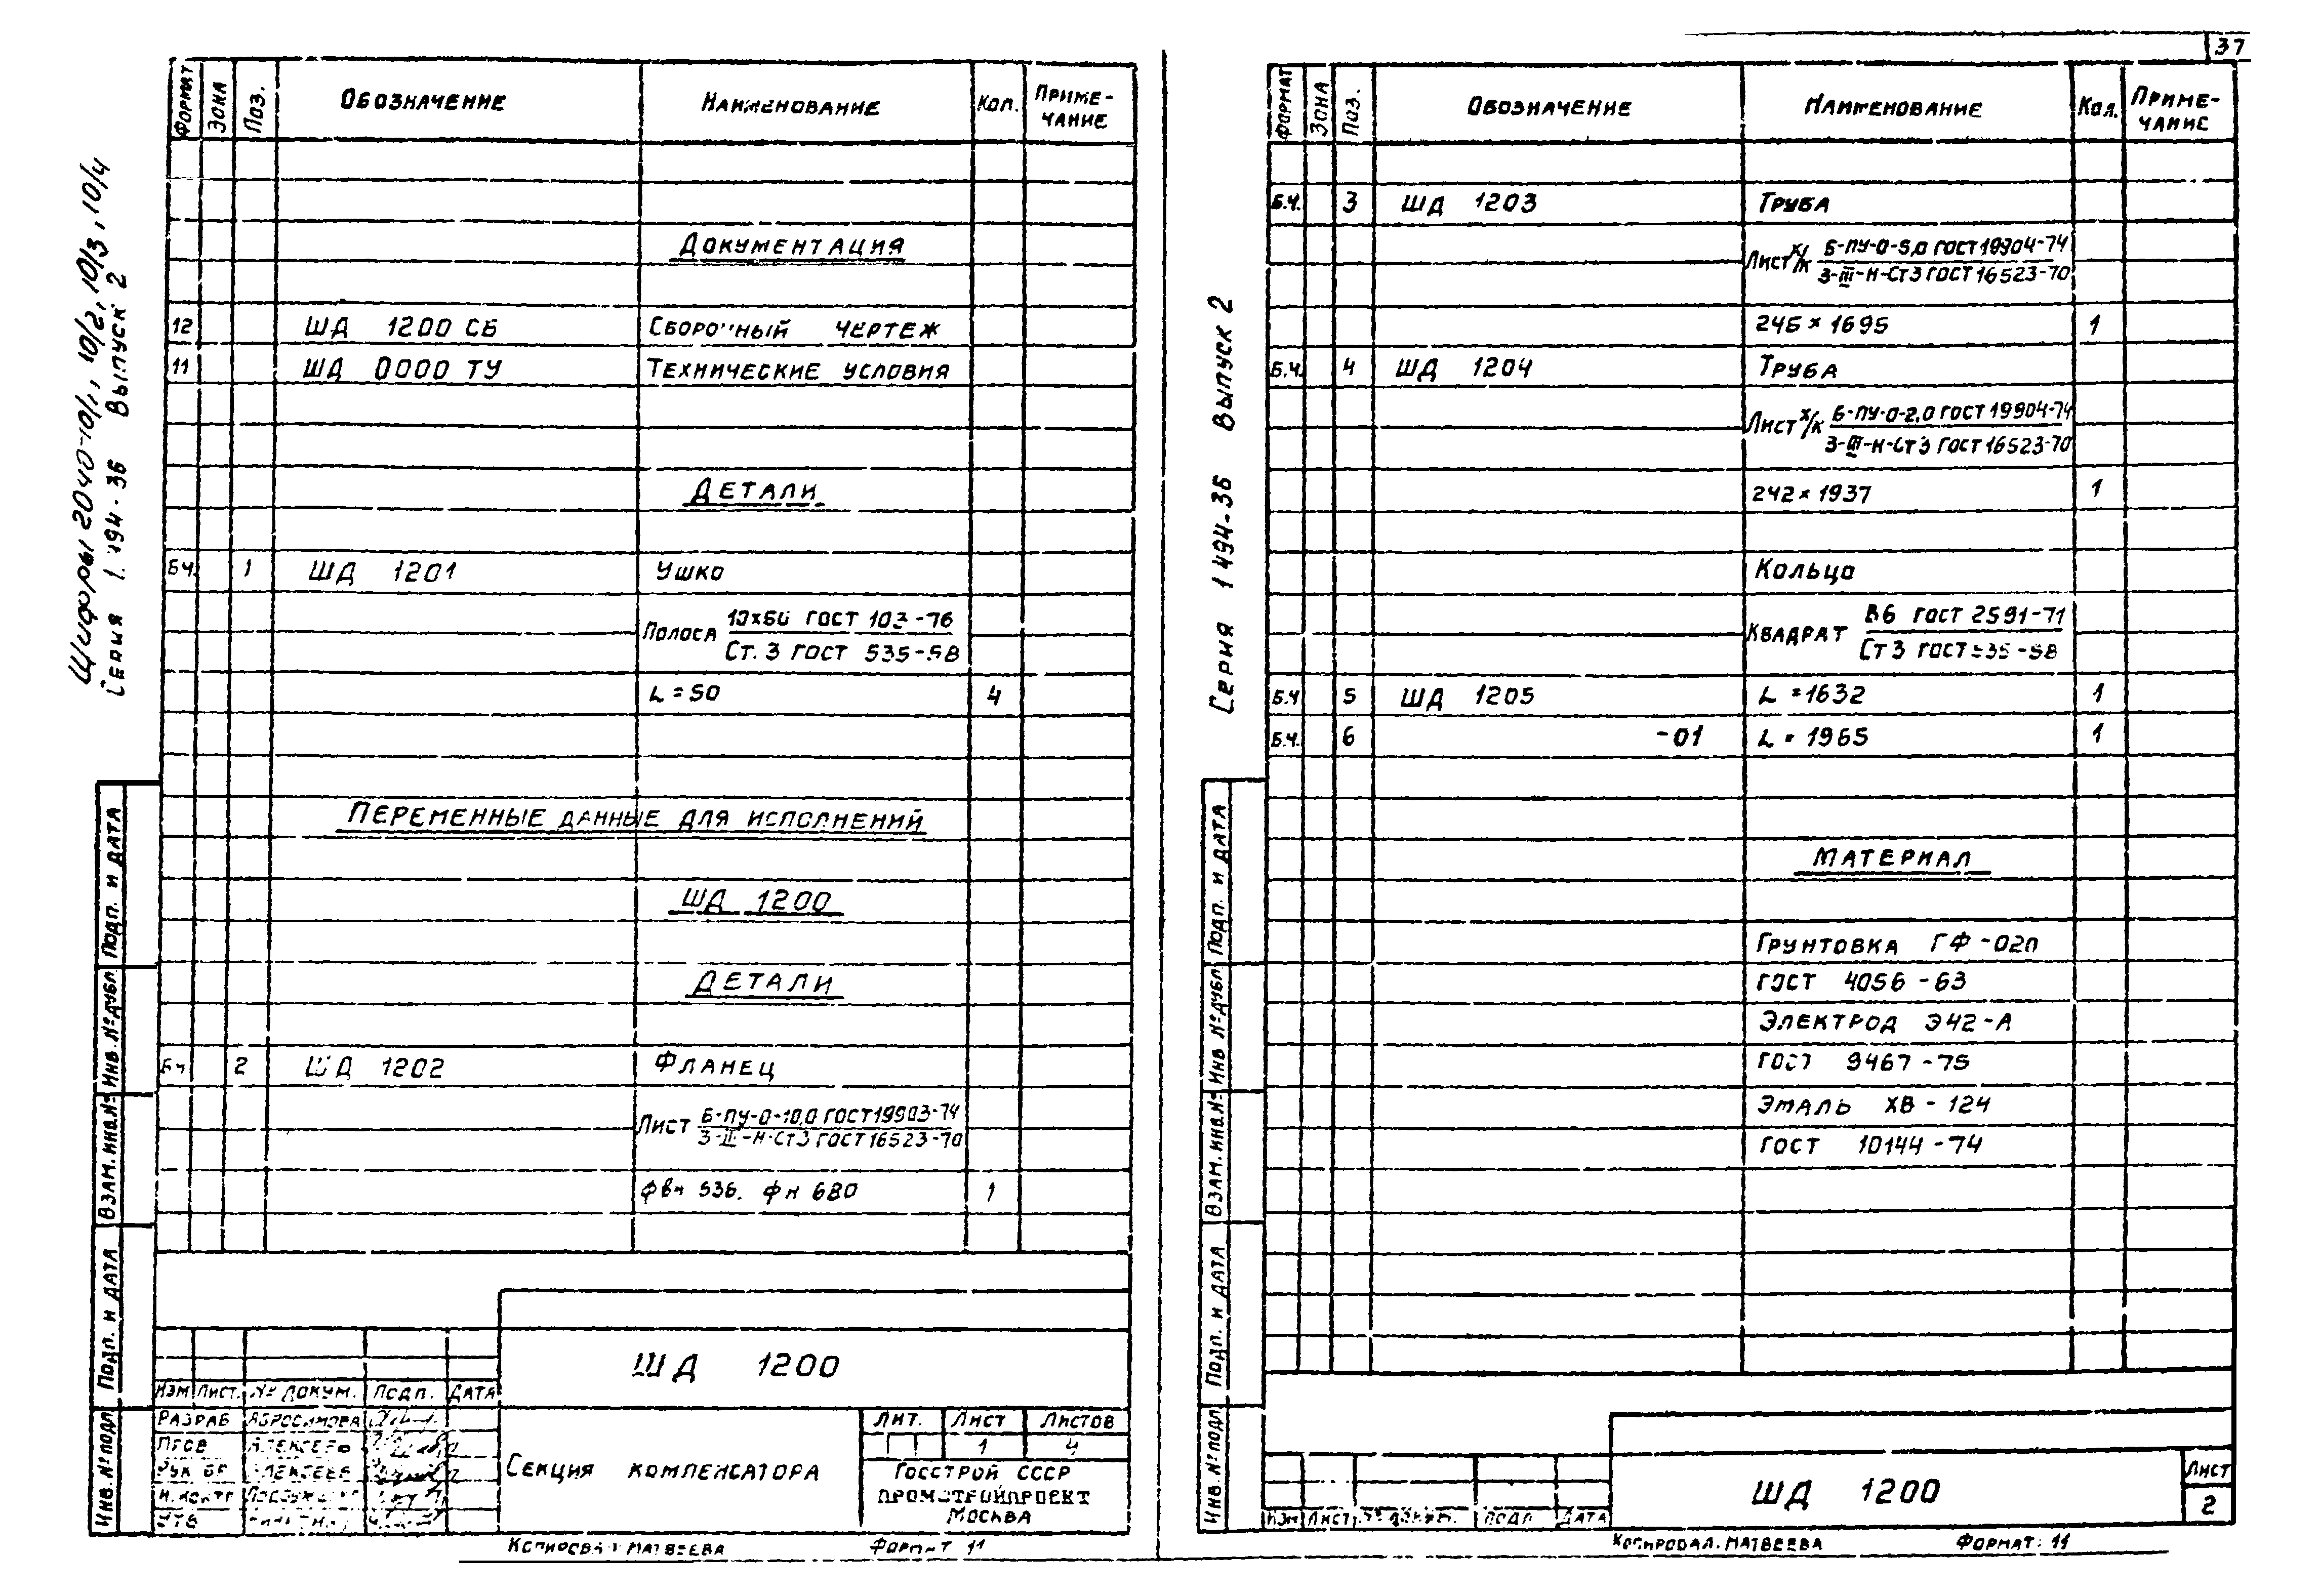 37
Шифры 2040-10/1, 10/2, 10/3, 10/4
Серия 1.494-36 Выпуск 2
Формат Зона Поз. Обозначение Наименование Кол. Приме-
чание
Документация
12 ШД 1200 СБ Сборочный чертеж
11 ШД 0000 ТУ Технические условия
Детали
БЧ. 1 ШД 1201 Ушко
Полоса 10х50 ГОСТ 103-76
Ст. 3 ГОСТ 535-58
L = 50 4
Переменные данные для исполнений
ШД 1200
Детали
БЧ 2 ШД 1202 Фланец
Лист Б-ПУ-О-10,0 ГОСТ 19903-74
3-III-Н-Ст3 ГОСТ 16523-70
фвн 536. фн 680 1
Подп. и дата
Инв. № дубл
Взам. инв. №
Подп. и дата
Инв. № подл
ШД 1200
Изм Лист. № докум. Подп. Дата
Разраб Абросимова
Пров Алексеева
Рук бр Алексеева
Н. контр
Утв
Секция компенсатора
Лит. Лист Листов
1 4
Госстрой СССР
Промстройпроект
Москва
Копировал Матвеева Формат 11
Серия 1 494-36 Выпуск 2
Формат Зона Поз. Обозначение Наименование Кол. Приме-
чание
Б.Ч. 3 ШД 1203 Труба
Лист х/к Б-ПУ-О-5,0 ГОСТ 19904-74
3-III-Н-Ст3 ГОСТ 16523-70
245 × 1695 1
Б.Ч. 4 ШД 1204 Труба
Лист х/к Б-ПУ-О-2,0 ГОСТ 19904-74
3-III-Н-Ст3 ГОСТ 16523-70
242 × 1937 1
Кольцо
Квадрат В6 ГОСТ 2591-71
Ст3 ГОСТ 535-58
Б.Ч 5 ШД 1205 L = 1632 1
Б.Ч. 6 -01 L = 1965 1
Материал
Грунтовка ГФ-020
ГОСТ 4056-63
Электрод Э42-А
ГОСТ 9467-75
Эмаль ХВ-124
ГОСТ 10144-74
Подп. и дата
Инв № дубл
Взам. инв. №
Подп. и дата
Инв. № подл
Изм Лист № докум. Подп Дата
ШД 1200
Лист
2
Копировал. Матвеева Формат: 11